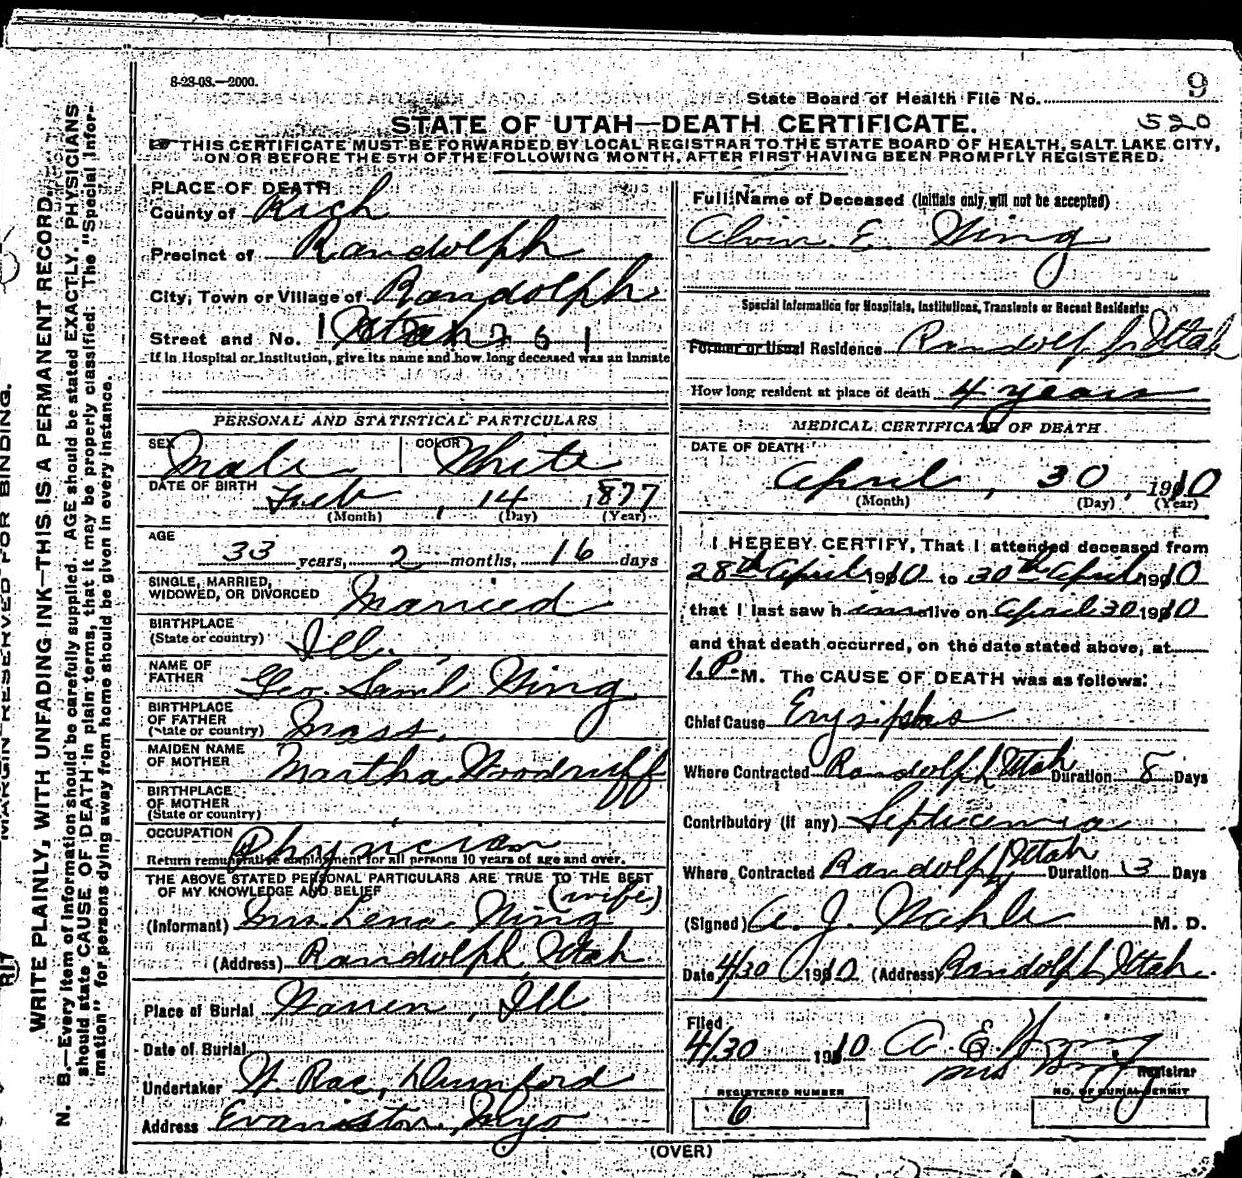 8-23-08.—2000.
State Board of Health File No. 9
STATE OF UTAH—DEATH CERTIFICATE.
520
THIS CERTIFICATE MUST BE FORWARDED BY LOCAL REGISTRAR TO THE STATE BOARD OF HEALTH, SALT LAKE CITY,
ON OR BEFORE THE 5TH OF THE FOLLOWING MONTH, AFTER FIRST HAVING BEEN PROMPTLY REGISTERED.
MARGIN RESERVED FOR BINDING.
WRITE PLAINLY, WITH UNFADING INK—THIS IS A PERMANENT RECORD.
N. B.—Every item of information should be carefully supplied. AGE should be stated EXACTLY. PHYSICIANS
should state CAUSE OF DEATH in plain terms, that it may be properly classified. The "Special Infor-
mation" for persons dying away from home should be given in every instance.
PLACE OF DEATH
County of Rich
Precinct of Randolph
City, Town or Village of Randolph
Street and No. Utah
If in Hospital or Institution, give its name and how long deceased was an inmate
PERSONAL AND STATISTICAL PARTICULARS
SEX Male COLOR White
DATE OF BIRTH Feb 14 1877
(Month) (Day) (Year)
AGE
33 years, 2 months, 16 days
SINGLE, MARRIED,
WIDOWED, OR DIVORCED Married
BIRTHPLACE
(State or country) Ill.
NAME OF
FATHER Geo. Saml Wing
BIRTHPLACE
OF FATHER
(State or country) Mass.
MAIDEN NAME
OF MOTHER Martha Woodruff
BIRTHPLACE
OF MOTHER
(State or country)
OCCUPATION Physician
Return remunerative employment for all persons 10 years of age and over.
THE ABOVE STATED PERSONAL PARTICULARS ARE TRUE TO THE BEST
OF MY KNOWLEDGE AND BELIEF (wife)
(Informant) Mrs. Lena Wing
(Address) Randolph, Utah
Place of Burial Warren, Ill
Date of Burial
Undertaker W. Rae, Dumford
Address Evanston, Wyo
Full Name of Deceased (Initials only will not be accepted)
Alvin E. Wing
Special Information for Hospitals, Institutions, Transients or Recent Residents:
Former or Usual Residence Randolph Utah
How long resident at place of death 4 years
MEDICAL CERTIFICATE OF DEATH
DATE OF DEATH
April, 30, 1910
(Month) (Day) (Year)
I HEREBY CERTIFY, That I attended deceased from
28th April 1910 to 30th April 1910
that I last saw him alive on April 30 1910
and that death occurred, on the date stated above, at
1. P. M. The CAUSE OF DEATH was as follows:
Chief Cause Erysipelas
Where Contracted Randolph Utah Duration 8 Days
Contributory (if any) Septicemia
Where Contracted Randolph, Utah Duration 3 Days
(Signed) A. J. M. D.
Date 4/30 1910 (Address) Randolph, Utah.
Filed
4/30 1910 A. E. Wing
Mrs Wing Registrar
REGISTERED NUMBER
6
NO. OF BURIAL PERMIT
(OVER)